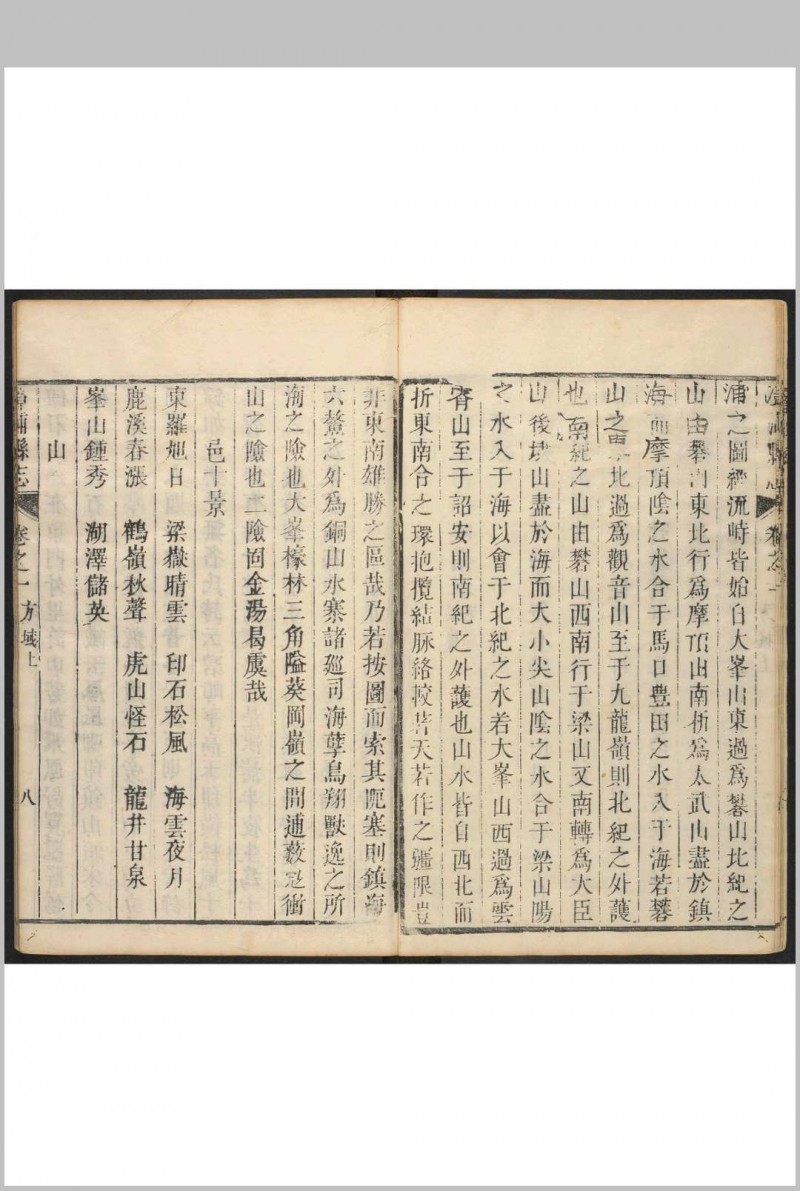 漳浦縣志 卷之一
浦之圖經流峙皆始自大峯山東過爲礬山北紀之
山由礬山東北行爲摩頂山南折爲太武山盡於鎮
海而摩頂陰之水合于馬口豊田之水入于海若礬
山之東北過爲觀音山至于九龍嶺則北紀之外護
也南紀之山由礬山西南行于梁山又南轉爲大臣
山後埭山盡於海而大小尖山陰之水合于梁山陽
之水入于海以會于北紀之水若大峯山西過爲雲
霄山至于詔安則南紀之外護也山水皆自西北而
折東南合之環抱攬結脉絡較著天若作之疆限豈
非東南雄勝之區哉乃若按圖而索其阨塞則鎮海
六鰲之外爲銅山水寨諸廵司海孽鳥翔獸逸之所
海之險也大峯檺林三角隘葵岡嶺之間逋藪冠衝
山之險也二險固金湯曷虞哉
邑十景
東羅旭日 梁嶽晴雲 印石松風 海雲夜月
鹿溪春漲 鶴嶺秋聲 虎山怪石 龍井甘泉
峯山鍾秀 湖澤儲英
山
漳浦縣志 卷之一 方域上 八